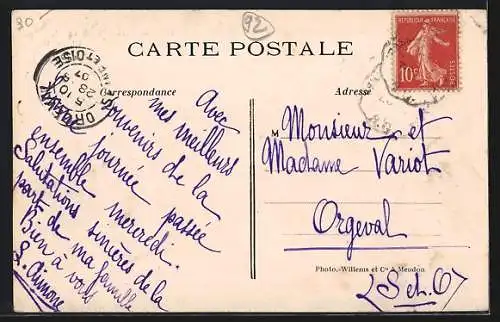 30
92
CARTE POSTALE
RÉPUBLIQUE FRANÇAISE
10c
ORGEVAL
5 10
28 8
07
ET OISE
Correspondance
Adresse
Avec
mes meilleurs
souvenirs de la
journée passée
ensemble mercredi.
Salutations sincères de la
part de ma famille
Bien à vous
S. Aimone
M Monsieur et
Madame Variot
Orgeval
S et O
Photo.-Willems et Cie à Meudon